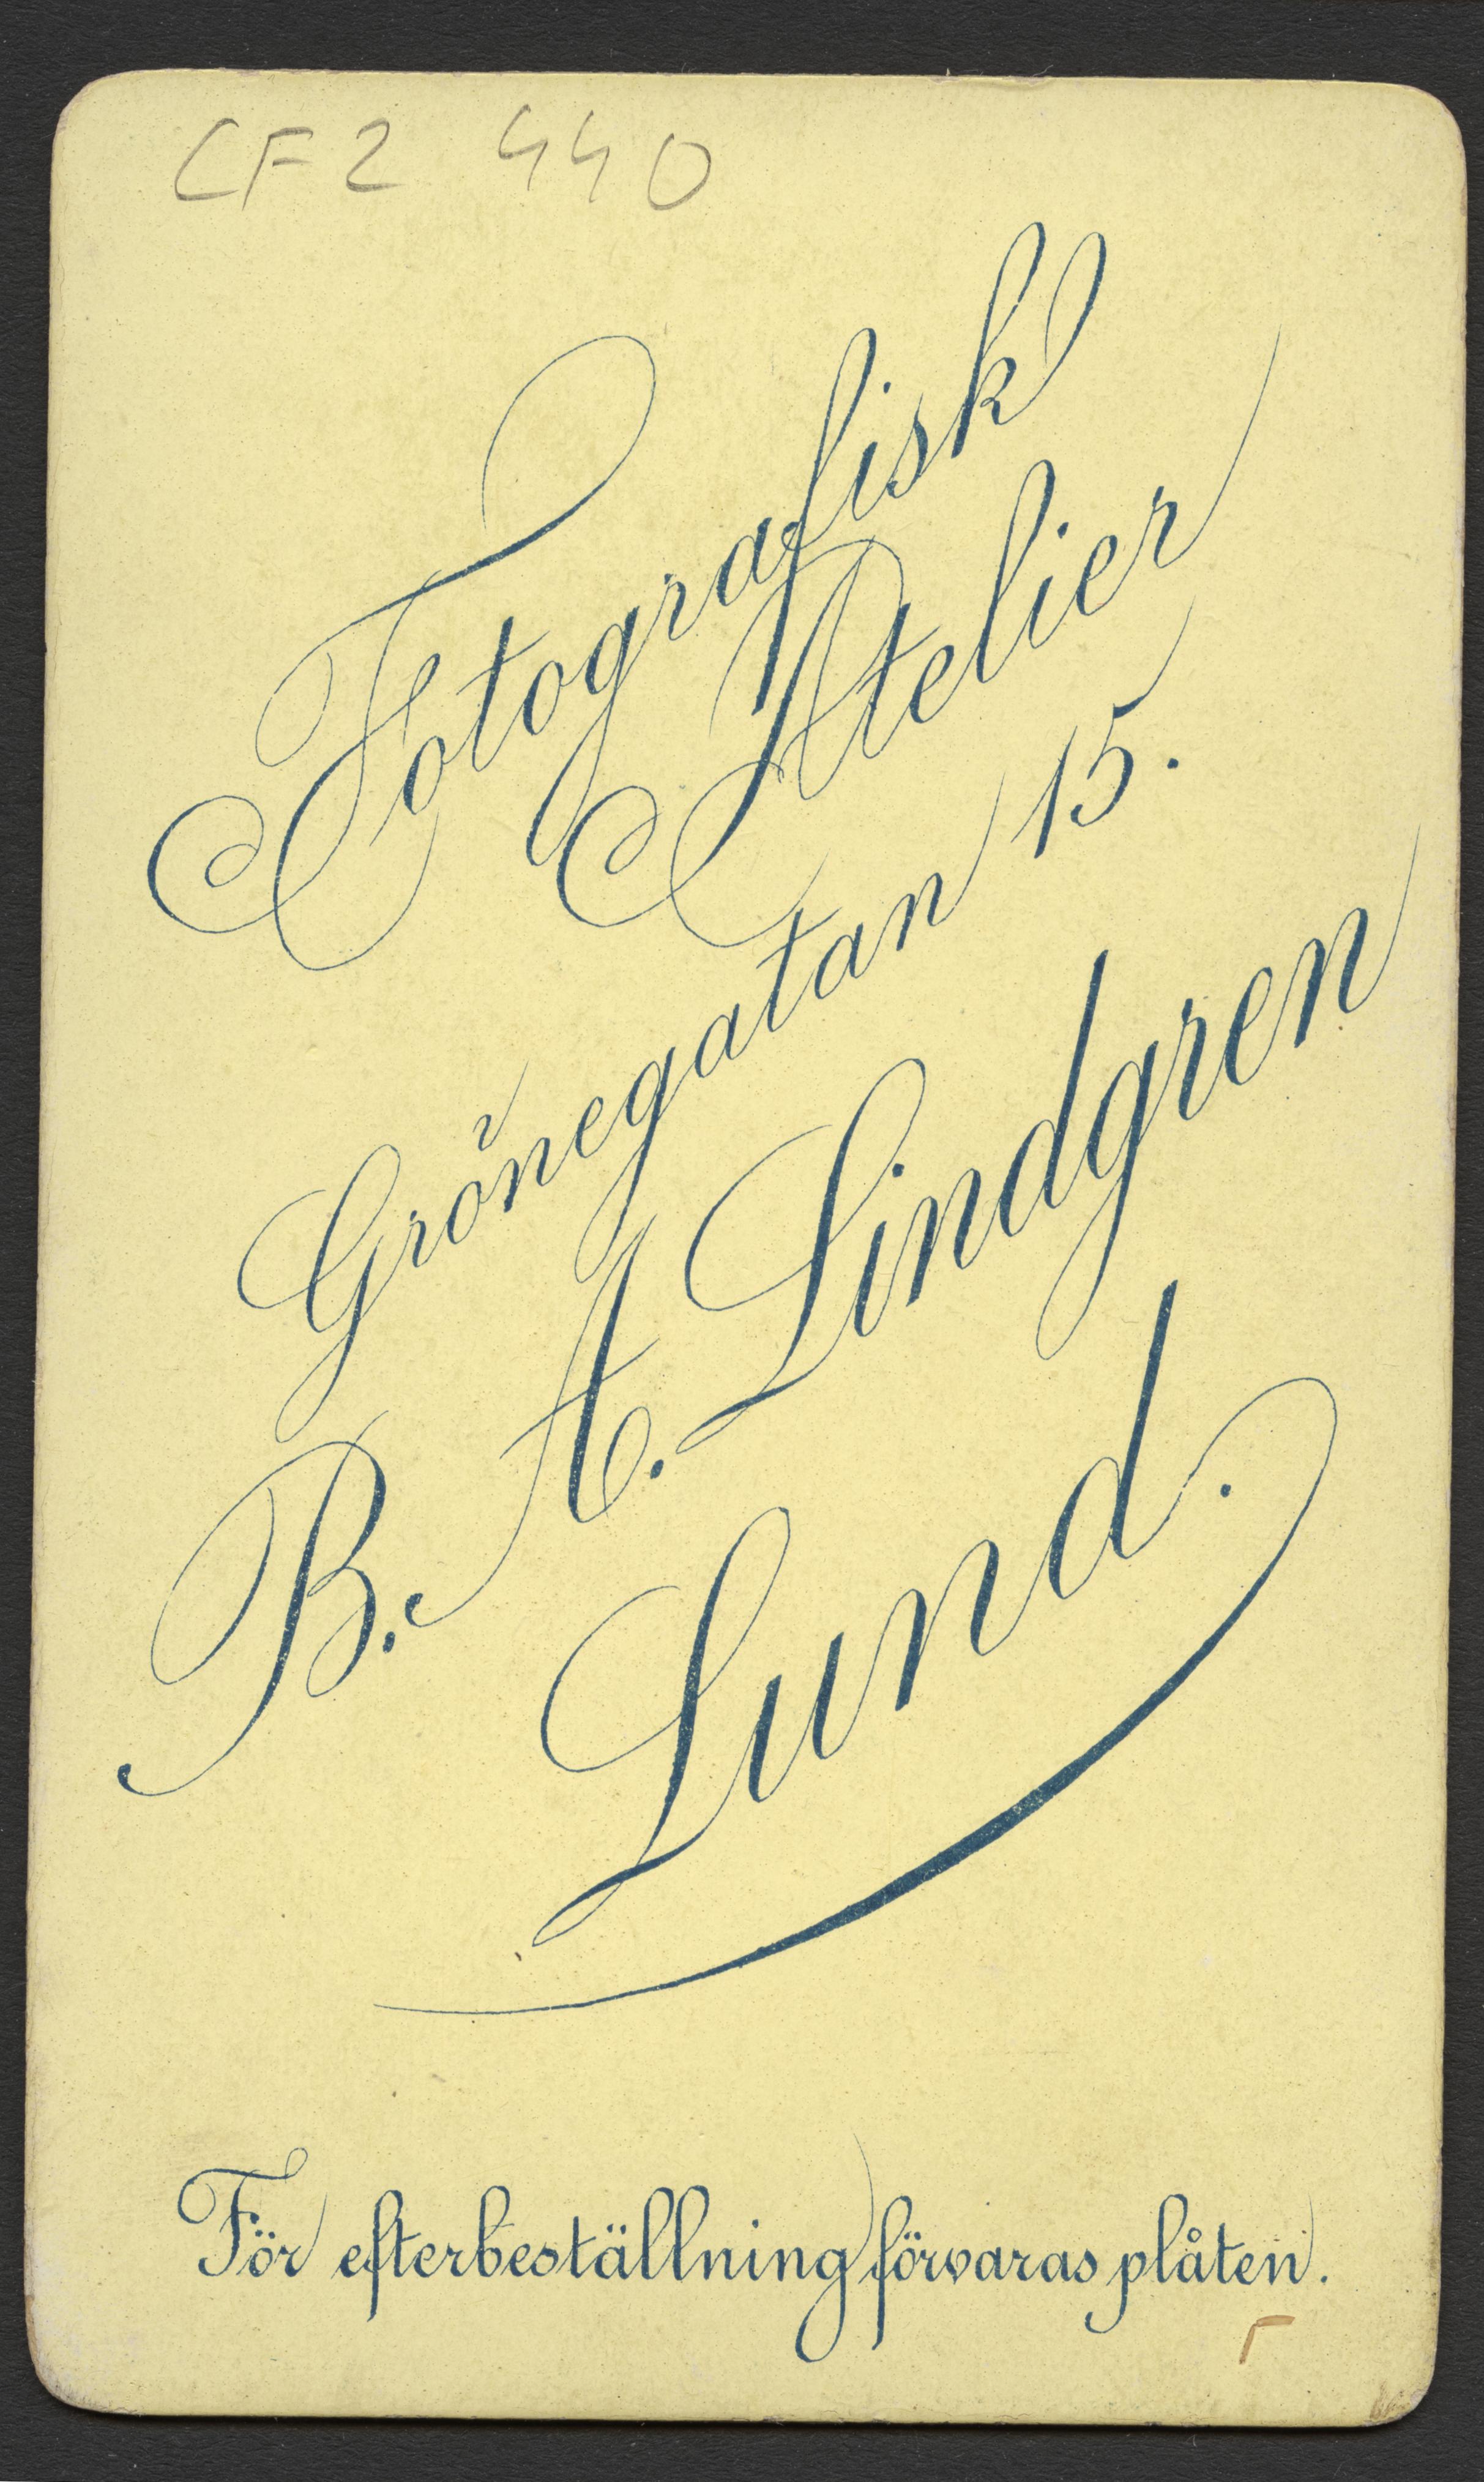 CFZ 440
Fotografisk
Atelier
Grönegatan 15.
B. A. Lindgren
Lund.
För efterbeställning förvaras plåten.